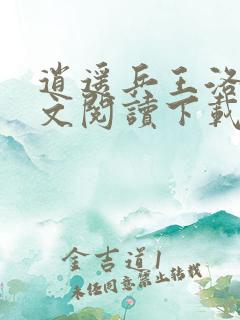 逍遥兵王洛
文閱讀下載
金吉道1
未經同意禁止轉載